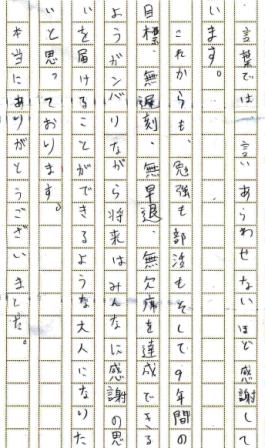 言葉では言いあらわせないほど感謝して
います。
これからも、勉強も部活もそして9年間の
目標、無遅刻、無早退、無欠席を達成できる
ようガンバリながら将来はみんなに感謝の思
いを届けることができるような大人になりた
いと思っております。
本当にありがとうございました。